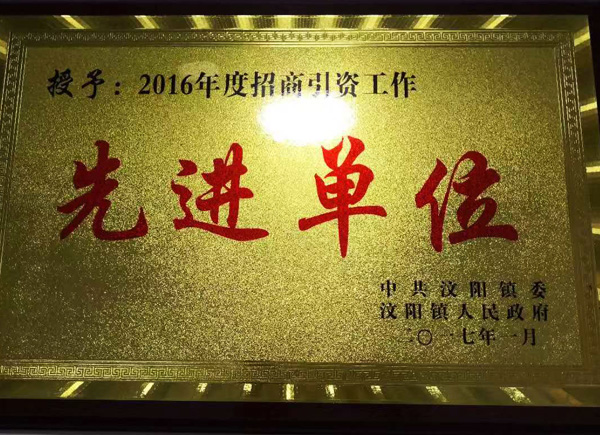 授予：2016年度招商引资工作
先进单位
中共汶阳镇委
汶阳镇人民政府
二〇一七年一月